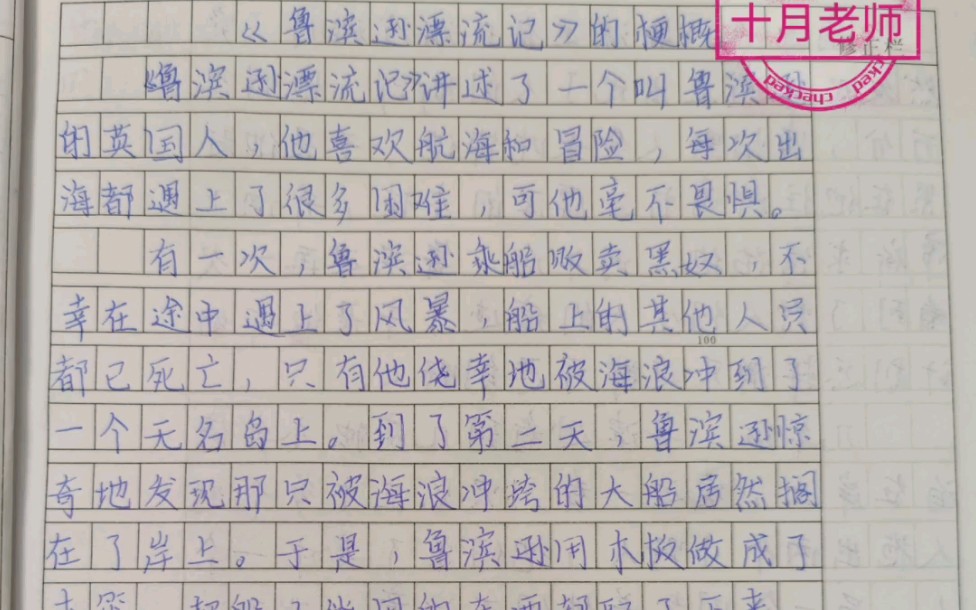 《鲁滨逊漂流记》的梗概
十月老师
修正栏
checked
《鲁滨逊漂流记》讲述了一个叫鲁滨逊
的英国人，他喜欢航海和冒险，每次出
海都遇上了很多困难，可他毫不畏惧。
有一次，鲁滨逊乘船贩卖黑奴，不
幸在途中遇上了风暴，船上的其他人员
100
都已死亡，只有他侥幸地被海浪冲到了
一个无名岛上。到了第二天，鲁滨逊惊
奇地发现那只被海浪冲垮的大船居然搁
在了岸上。于是，鲁滨逊用木板做成了